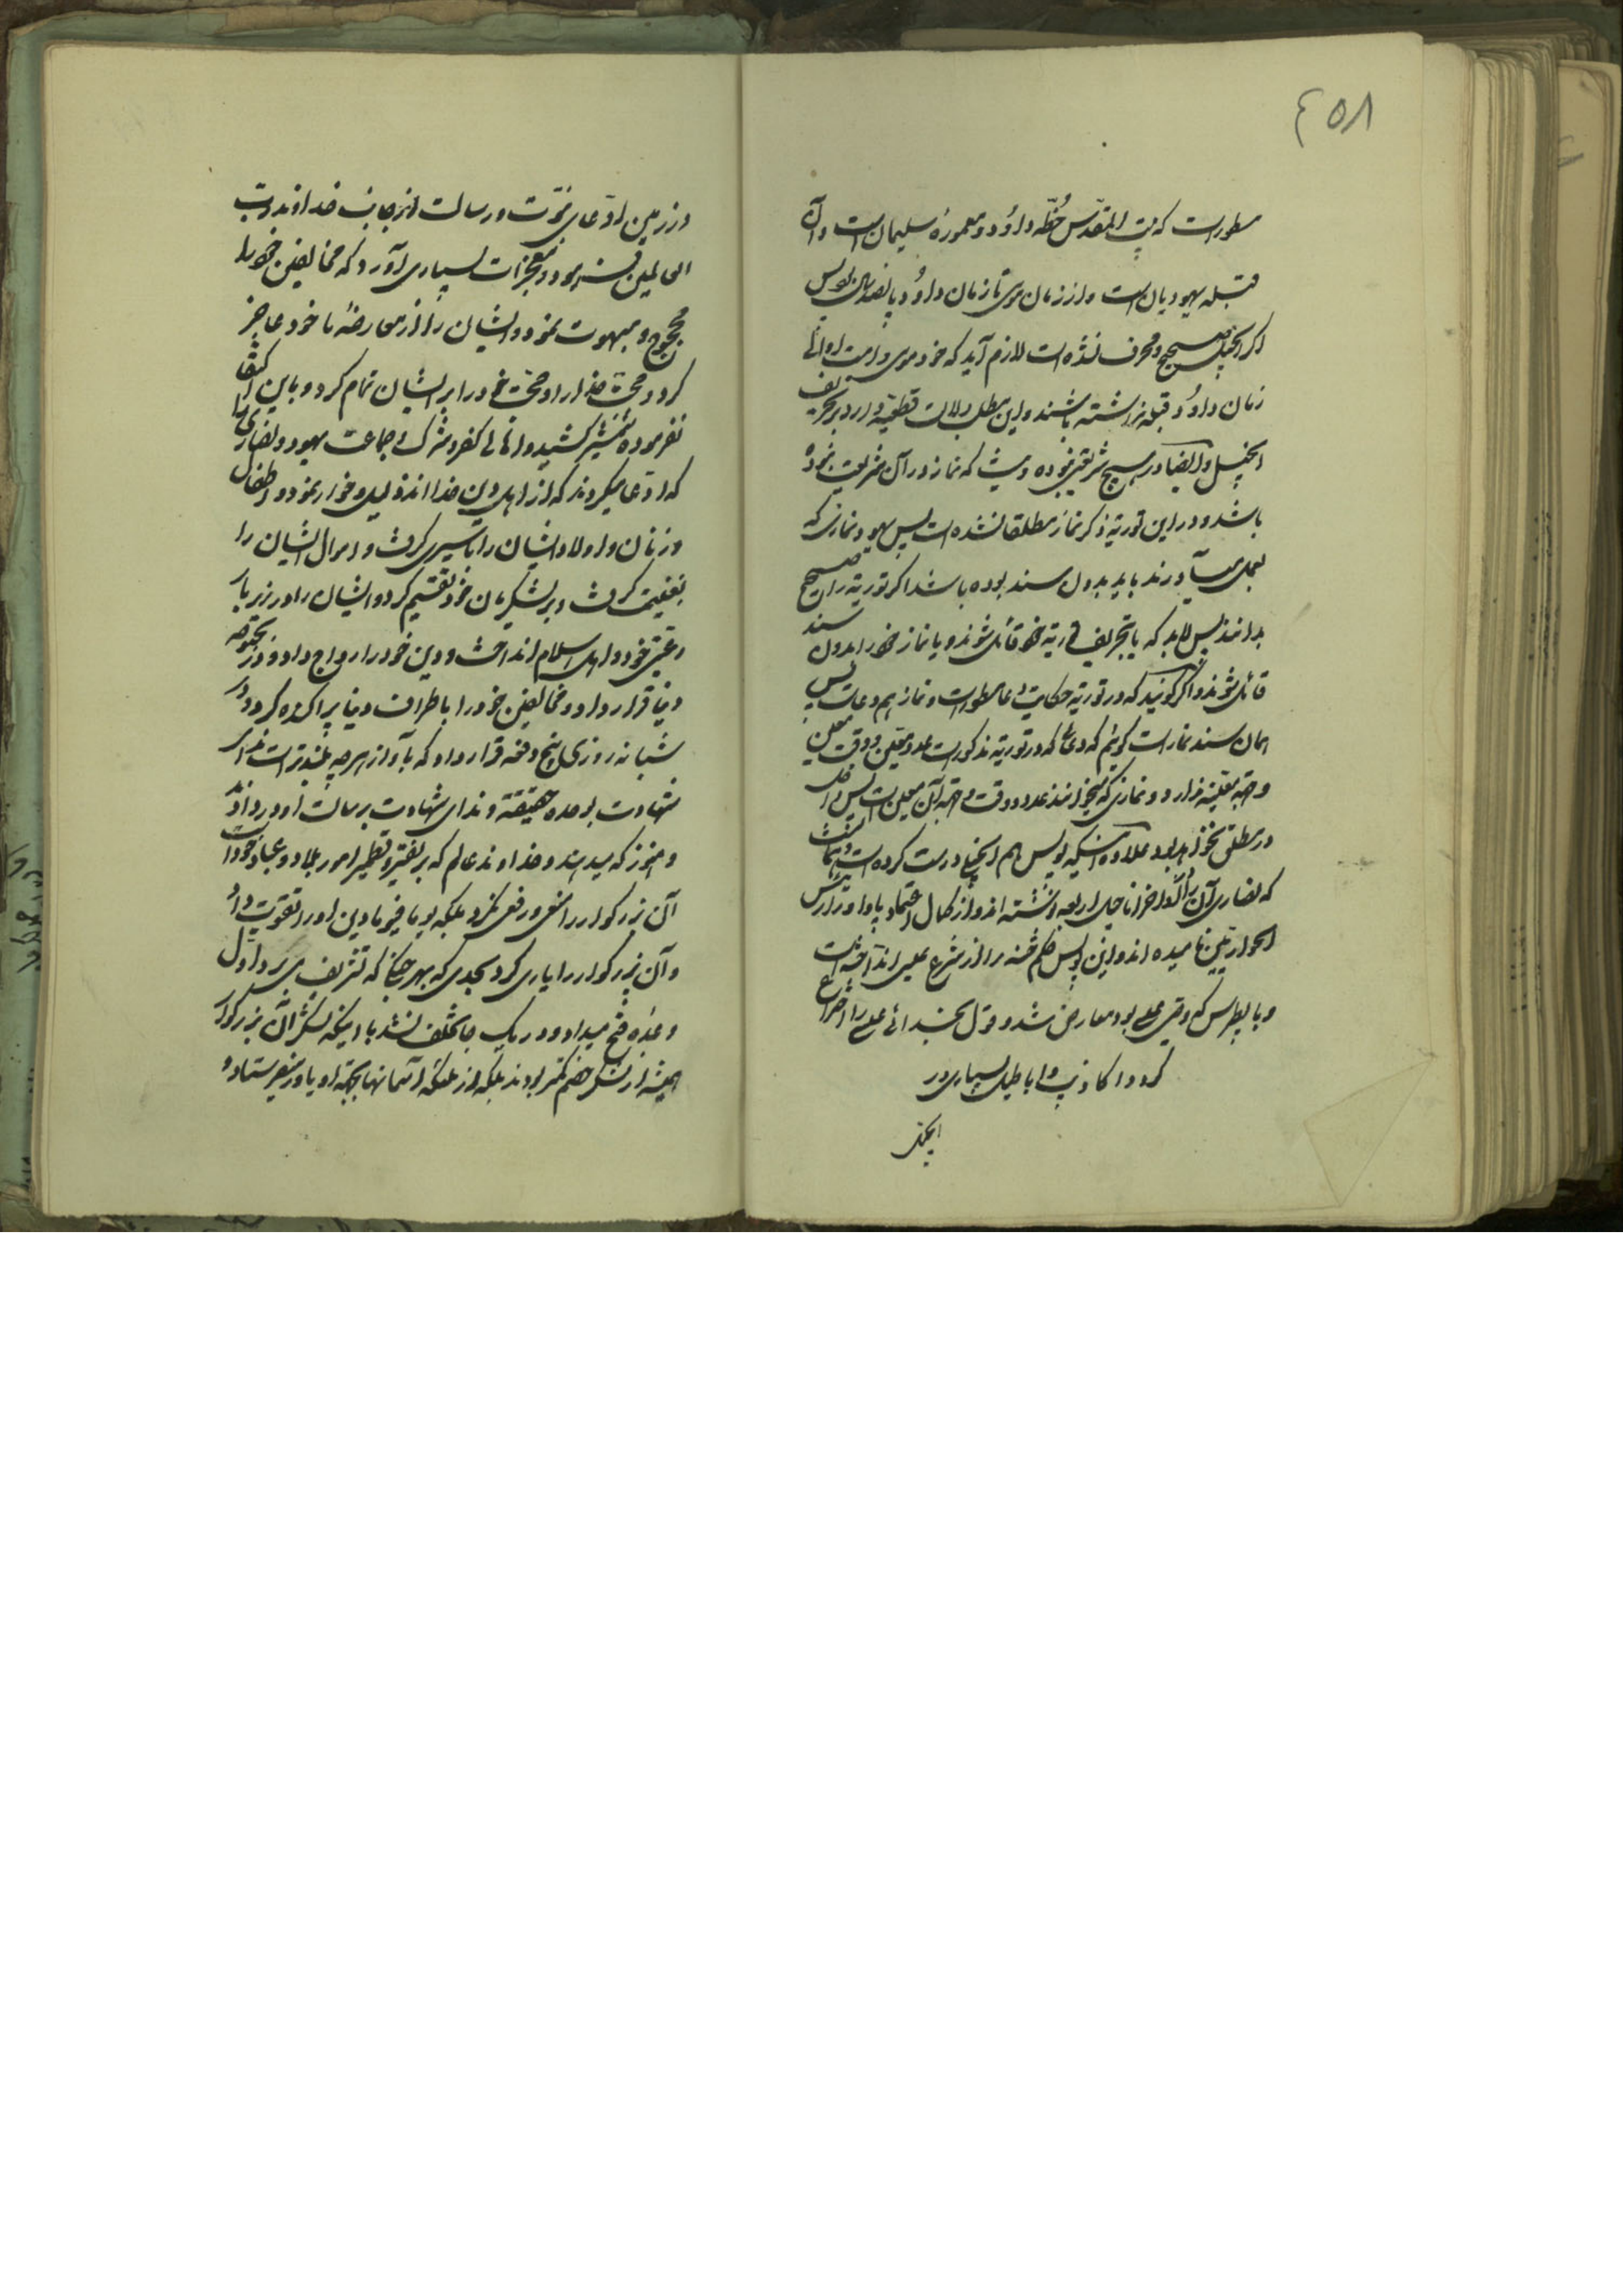 ۴۵۸
مسطور است که بیت المقدّس خُطّه داوُد و معمورهٔ سلیمان است و آن
قبله یهودیان است و از زمان موسی تا زمان داوُد پانصد سال بود پس
اگر انجیل صحیح و محرف نشده است لازم آید که خود موسی و امت او الی
زمان داوُد قبله نداشته باشند و این مطلب دلالت قطعیّه دارد بر تحریف
انجیل و ایضا در هیچ شریعتی نبوده و نیست که نماز در آن شریعت نبوده
باشد و در این توریة ذکر نماز مطلقا نشده است پس یهود نمازی که
بعمل میآورند باید بدون سند بوده باشد اگر توریة را صحیح
بدانند پس لابد که یا بتحریف توریة خود قائل شوند و یا نماز خود را بدون سند
قائل شوند و اگر گویند که در توریة حکایت دعا مسطور است و نماز هم دعاست پس
همان سند نماز است گوئیم که دعائی که در توریة مذکور است عدد معیّن و وقت معین
وجهة معینه ندارد و نمازی که میخوانند عدد و وقت و جهة آن معین است پس داخل
در مطلق نخواهد بود علاوه اینکه پولس هم انجیلی درست کرده است
که نصاری آن را اخر اناجیل اربعه نوشته اند و از کمال اعتماد باو او را رئیس
الحواریّین نامیده اند و این پولس حکم ختنه را از شرع عیسی انداخته است
و با پطرس که وصی عیسی بود معارض شد و قول بخدائی عیسی را اختراع
کرد و اکاذیب و اباطیل بسیاری در
انجیل
در زمین ادّعای نبوّت و رسالت از جانب خداوند ربّ
العالمین فرمود و معجزات بسیاری آورد که مخالفین خود را
محجوج و مبهوت نمود و ایشان را از معارضهٔ با خود عاجز
کرد و حجّت خدا را و حجّت خود را بر ایشان تمام کرد و باین اکتفا
نفرموده شمشیر کشید و اهالی کفر و شرک و جماعت یهود و نصاری را
که ادّعا میکردند که از اهل دین خدا اند ذلیل و خوار نمود و اطفال
و زنان و اولاد ایشان را باسیری گرفت و اموال ایشان را
بغنیمت گرفت و بر لشکریان خود تقسیم کرد و ایشان را در زیر بار
رعیتی خود و اهل اسلام انداخت و دین خود را رواج داد و در
دنیا قرار داد و مخالفین خود را باطراف دنیا پراکنده کرد و در
شبانه روزی پنج دفعه قرار داد که بآواز هر چه بلندتر است ندای
شهادت بوحده حقیقة و ندای شهادت برسالت او در دادند
و هنوز که میدهند و خداوند عالم که بر نقیر و قطمیر امور بلاد و عباد خود
آن بزرگوار را منع و رفع نکرد بلکه یوما فیوما دین او را تقویت داد
و آن بزرگوار را یاری کرد بحدی که بهر جنگی که تشریف می برد اوّل
وعده فتح میداد و در یک جا تخلف نشد با اینکه لشکر آن بزرگوار
همیشه از لشکر خصم کمتر بودند بلکه از ملائکه آسمانها بجهة او یاور میفرستاد و